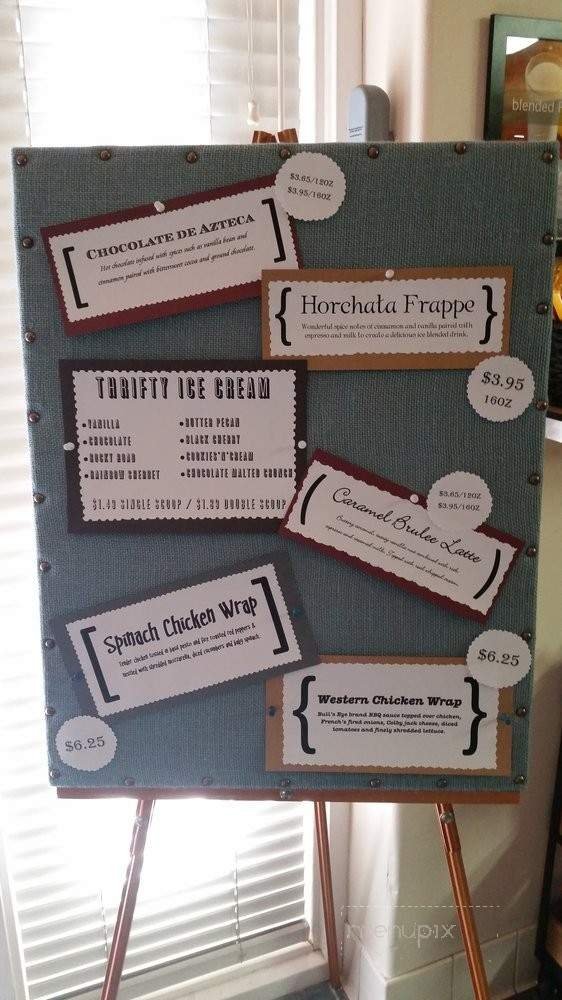 blended
$3.65/12OZ
$3.95/16OZ
CHOCOLATE DE AZTECA
Hot chocolate infused with spices such as vanilla bean and
cinnamon paired with bittersweet cocoa and ground chocolate.
Horchata Frappe
Wonderful spice notes of cinnamon and vanilla paired with
espresso and milk to create a delicious ice blended drink.
$3.95
16OZ
THRIFTY ICE CREAM
•VANILLA
•CHOCOLATE
•ROCKY ROAD
•RAINBOW SHERBET
•BUTTER PECAN
•BLACK CHERRY
•COOKIES'N'CREAM
•CHOCOLATE MALTED CRUNCH
$1.49 SINGLE SCOOP / $1.99 DOUBLE SCOOP
$3.65/12OZ
$3.95/16OZ
Caramel Brulee Latte
Creamy caramel, sweet vanilla and combined with rich
espresso and steamed milk. Topped with real whipped cream.
Spinach Chicken Wrap
Tender chicken tossed in basil pesto and fire roasted red peppers &
nestled with shredded mozzarella, diced cucumbers and baby spinach.
$6.25
$6.25
Western Chicken Wrap
Bull's Eye brand BBQ sauce topped over chicken,
French's fried onions, Colby jack cheese, diced
tomatoes and finely shredded lettuce.
menupix